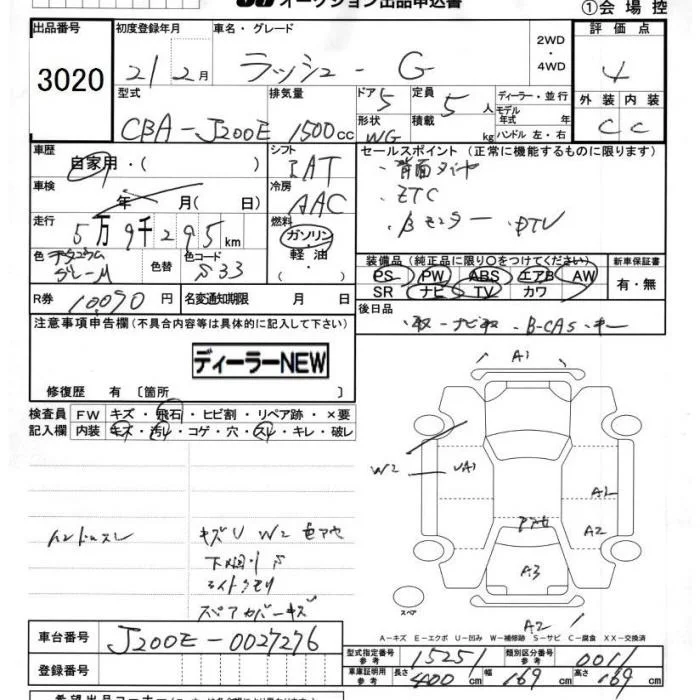 オークション出品申込書
①会場控
出品番号 初度登録年月 車名・グレード 2WD・4WD 評価点
3020 21 2月 ラッシュ - G 4
型式 排気量 ドア 5 定員 5人 ディーラー・並行 外装 内装
CBA-J200E 1500cc 形状 WG 積載 kg モデル年式 年 ハンドル 左・右 C C
車歴 自家用・( ) シフト IAT セールスポイント(正常に機能するものに限ります)
車検 年 月( 日) 冷房 AAC ・背面タイヤ
・ETC
走行 5万9千295km 燃料 ガソリン・軽油・
色 チタニウム グレーM 色替 色コード S33
装備品(純正品に限り○をつけてください) 新車保証書
PS PW ABS エアB AW 有・無
SR ナビ TV カワ
R券 10090円 名変通知期限 月 日 後日品
注意事項申告欄(不具合内容等は具体的に記入して下さい)
ディーラーNEW
修復歴 有〔箇所 〕
検査員記入欄 FW キズ・飛石・ヒビ割・リペア跡・×要
内装 キズ・汚れ・コゲ・穴・スレ・キレ・破レ
A1
W2 UA1 A1
A2
A3
A2
ハンドルスレ キズU W2 もアセ
スペアカバーキズ
スペア
A-キズ E-エクボ U-凹み W-補修跡 S-サビ C-腐食 XX-交換済
車台番号 J200E-0027276
型式指定番号 参考 15251 類別区分番号 参考 0011
登録番号
車庫証明用 参考 長さ 400cm 幅 169cm 高さ 169cm